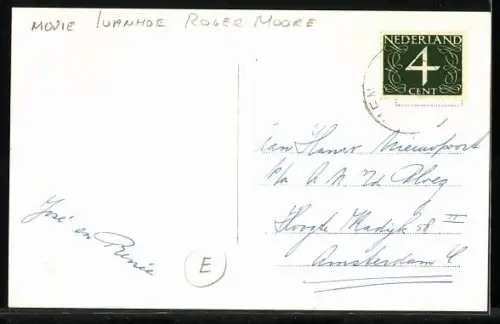 MOVIE IVANHOE ROGER MOORE
NEDERLAND
4
CENT
aan Hansx Nieuwpoort
p/a A. N. v/d Ploeg
Hoogte Kadijk 58 II
Amsterdam C
José en Renée
E